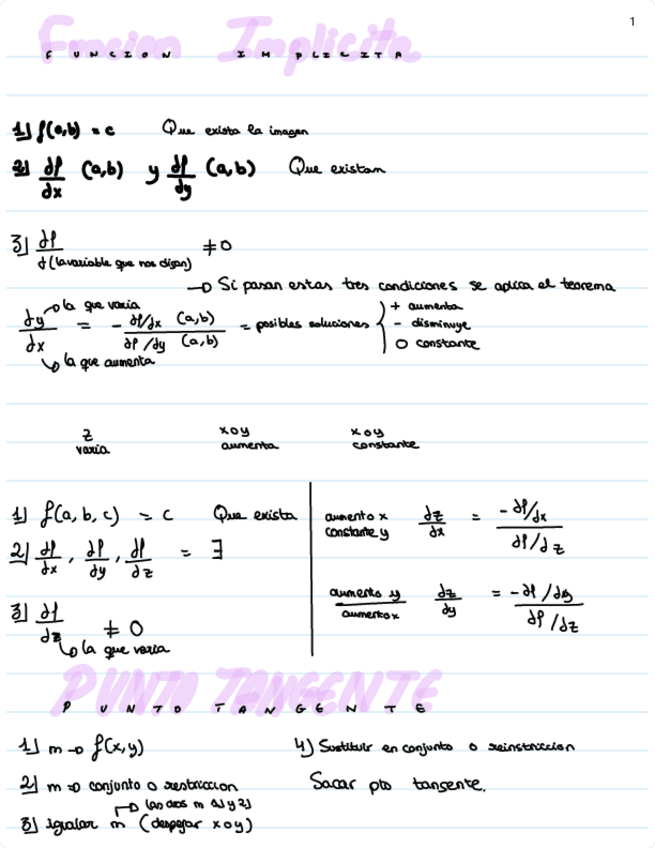 1
Funcion Implicita
FUNCION IMPLICITA
1) f(a,b) = c Que exista la imagen
2) df/dx (a,b) y df/dy (a,b) Que existan
3) df/d(la variable que nos digan) ≠ 0
→ Si pasan estas tres condiciones se aplica el teorema
→ la que varia
dy/dx = - df/dx (a,b) / df/dy (a,b) = posibles soluciones { + aumenta
- disminuye
0 constante
→ la que aumenta
z varia
x o y aumenta
x o y constante
1) f(a, b, c) = c Que exista
2) df/dx, df/dy, df/dz = ∃
3) df/dz ≠ 0
→ la que varia
aumento x constante y dz/dx = -df/dx / df/dz
aumento y / aumento x dz/dy = -df/dy / df/dz
PUNTO TANGENTE
PUNTO TANGENTE
1) m → f(x,y)
2) m → conjunto o restriccion
→ las dos m 1) y 2)
3) igualar m (despejar x o y)
4) Sustituir en conjunto o
Sacar pto tangente.